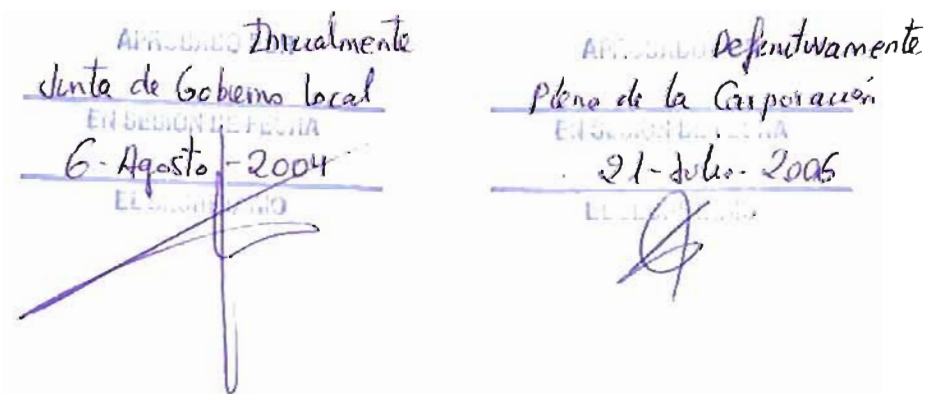 APROBADO Inicialmente
Junta de Gobierno Local
EN SESION DE FECHA
6-Agosto-2004
EL SECRETARIO
APROBADO Definitivamente
Pleno de la Corporación
EN SESION DE FECHA
21-Julio-2005
EL SECRETARIO